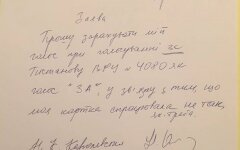 Заява
Прошу зарахувати мій
голос при голосуванні за
Постанову ВРУ № 4080 як
голос "ЗА" у зв'язку з тим, що
моя картка спрацювала не так,
як треба.